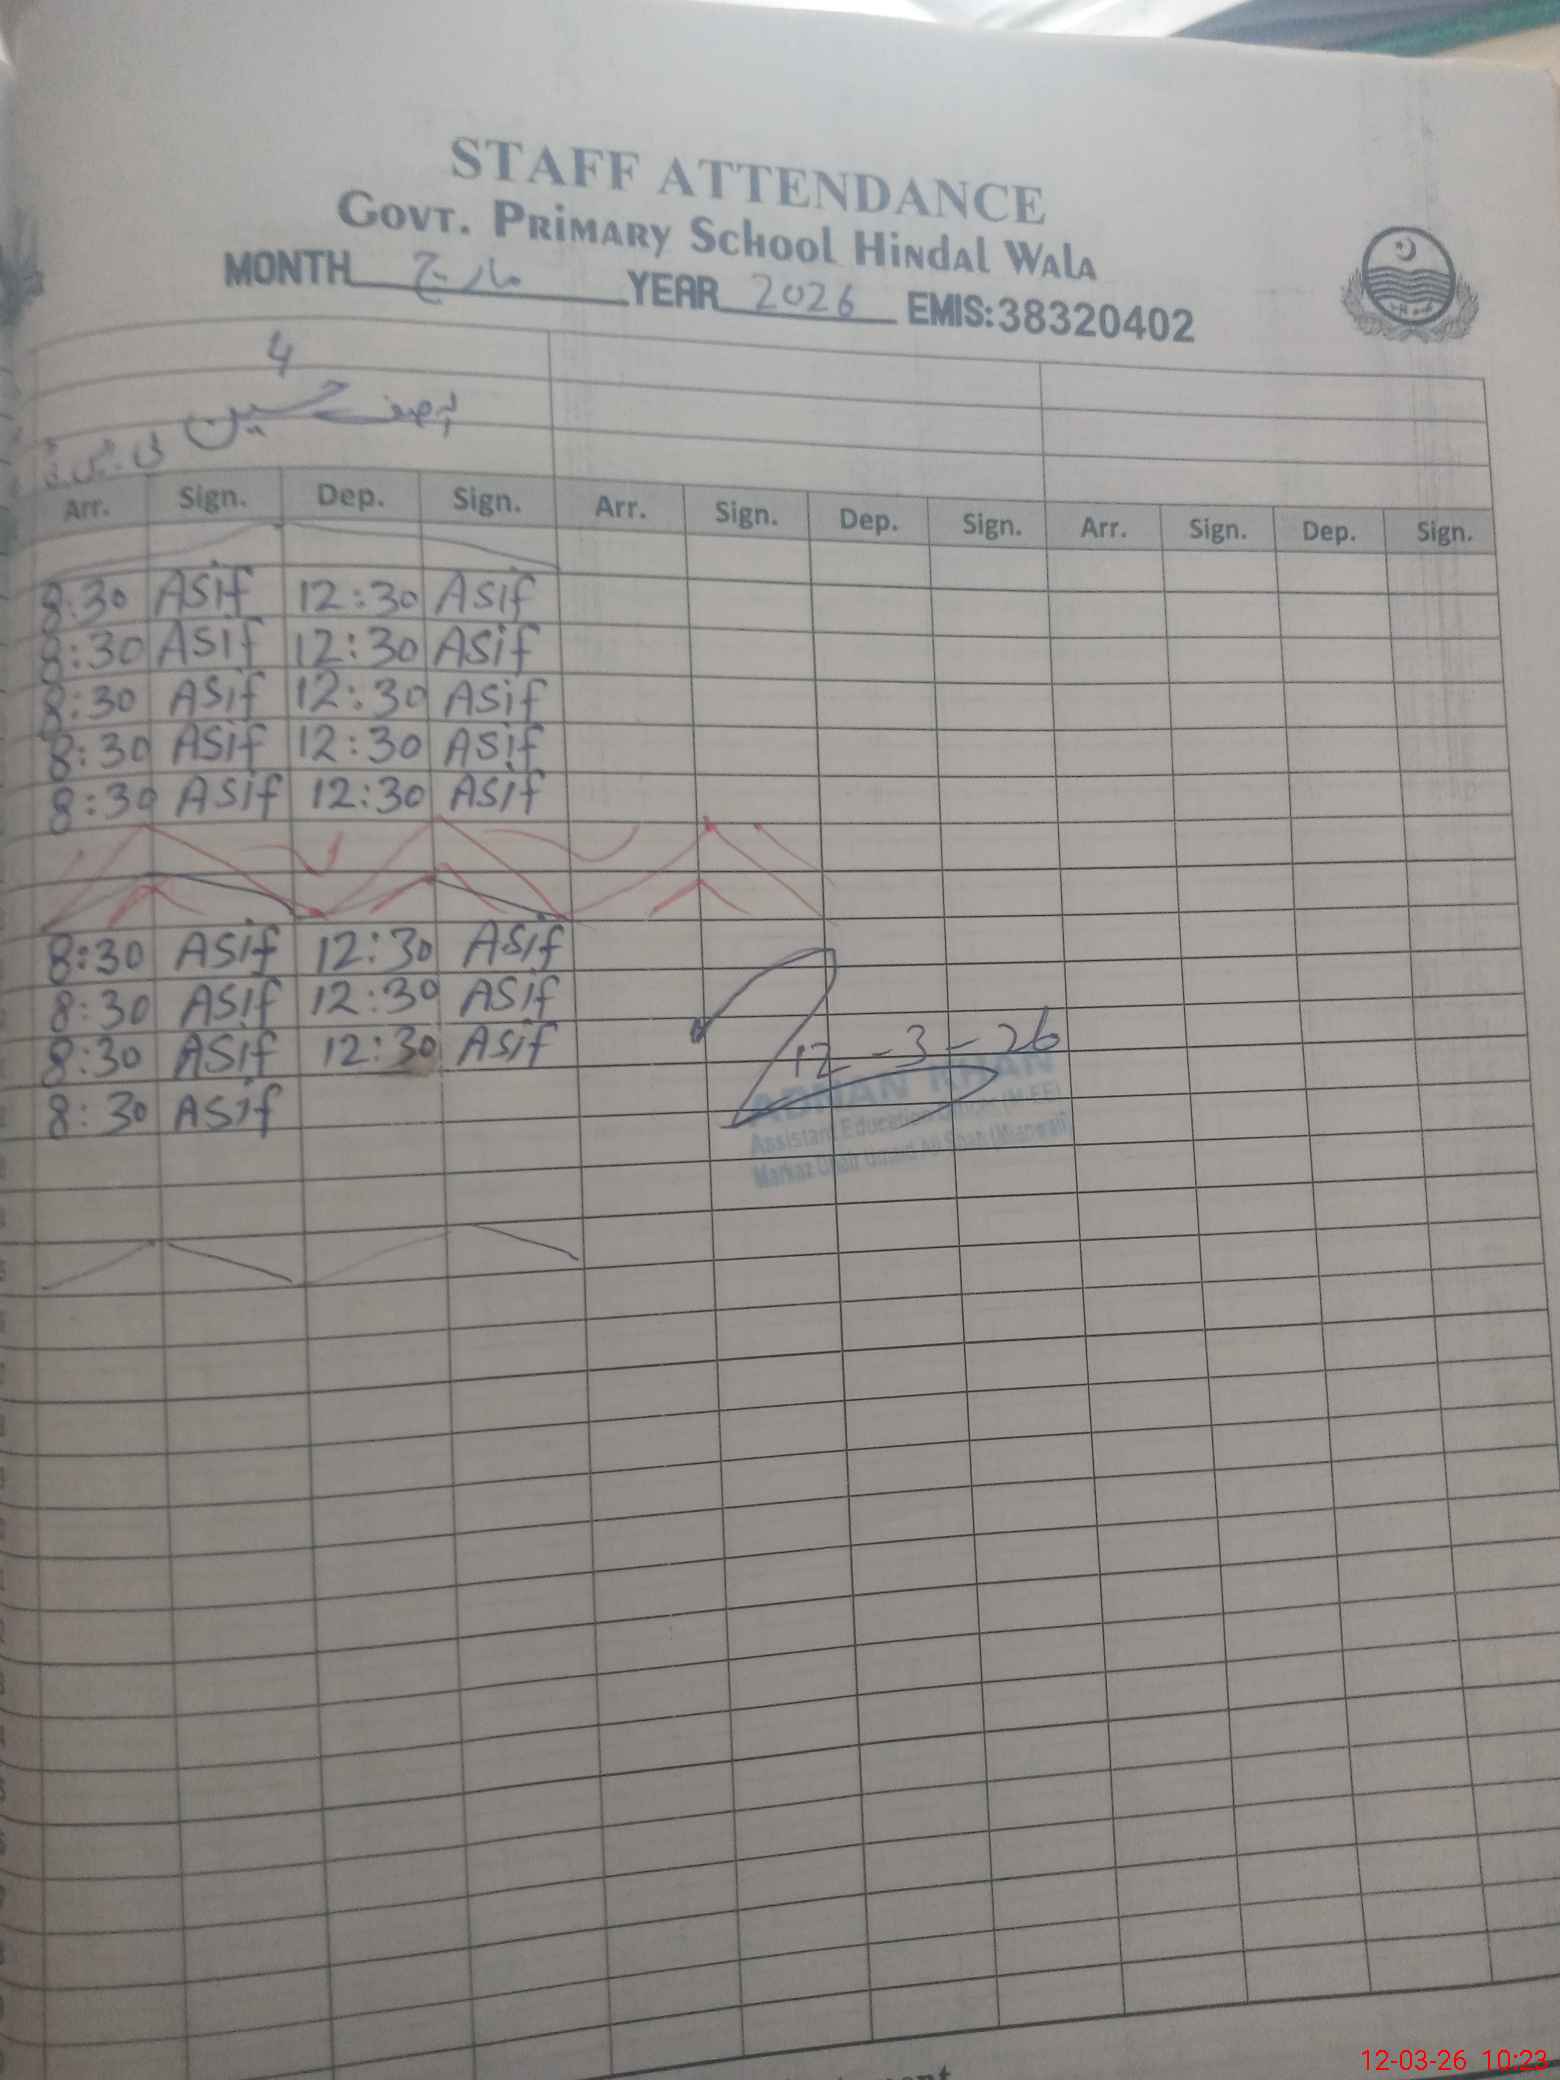 STAFF ATTENDANCE
GOVT. PRIMARY SCHOOL HINDAL WALA
MONTH مارچ YEAR 2026 EMIS:38320402
4
حسین
Arr. Sign. Dep. Sign. Arr. Sign. Dep. Sign. Arr. Sign. Dep. Sign.
8:30 Asif 12:30 Asif
8:30 Asif 12:30 Asif
8:30 Asif 12:30 Asif
8:30 Asif 12:30 Asif
8:30 Asif 12:30 Asif
8:30 Asif 12:30 Asif
8:30 Asif 12:30 Asif
8:30 Asif 12:30 Asif
8:30 Asif
12-3-26
ADNAN KHAN
Assistant Education
Markaz
12-03-26 10:23